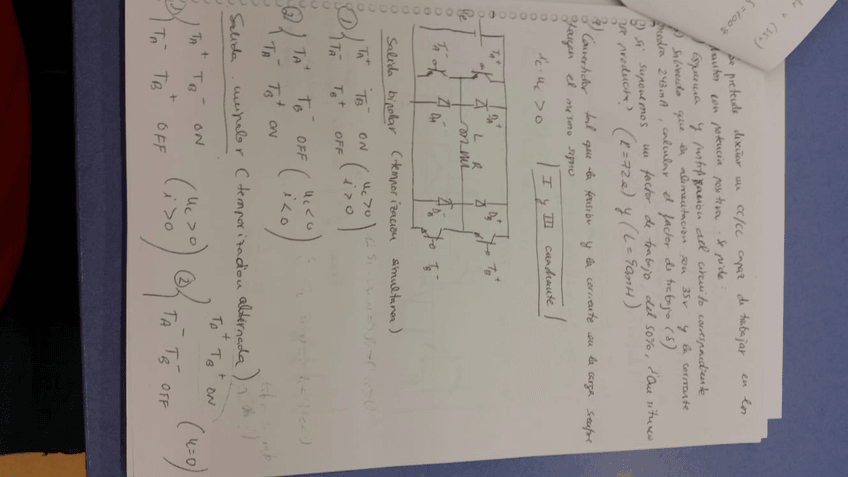 se pretende diseñar un CC/CC capaz de trabajar en los
con potencia positiva. se pide:
Esquema y justificacion del circuito correspondiente
sabiendo que la alimentacion son 35v y la corriente
media 243mA, calcular el factor de trabajo (δ)
si suponemos un factor de trabajo del 50%, ¿Que
se produciria? (R=72Ω) y (L=90mH)
Convertidor tal que la tension y la corriente en la carga siempre
tengan el mismo signo
ic·uc > 0 | I y III cuadrante |
TA+ DA+ DB+ TB+
L R
TA- DA- DB- TB-
Salida bipolar (temporizacion simultanea)
① { TA+ TB- ON (uc>0)
TA- TB+ OFF (i>0)
② { TA+ TB- OFF (uc<0)
TA- TB+ ON (i<0)
Salida unipolar (temporizacion alternada)
① { TA+ TB- ON (uc>0)
TA- TB+ OFF (i>0)
② { TA+ TB+ ON
TA- TB- OFF (u=0)